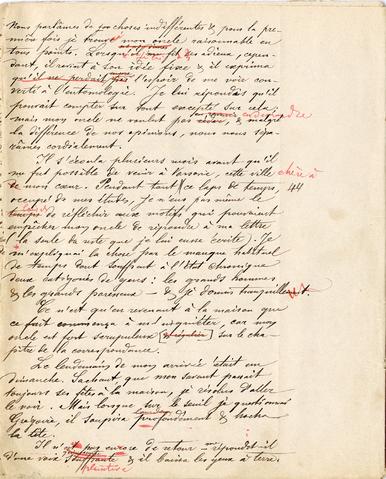 Nous parlâmes de 100 choses indifférentes &, pour la pre-
mière fois je trouvai mon oncle raisonnable en
tous points. Lorsque je lui fis mes adieux, cepen-
dant, il revint à son idée fixe & il exprima
qu'il ne perdait pas l'espoir de me voir con-
verti à l'entomologie. Je lui répondais qu'il
pouvait compter sur tout excepté sur cela;
mais mon oncle ne voulut pas en démordre &, malgré
la différence de nos opinions, nous nous sépa-
râmes cordialement.
Il s'écoula plusieurs mois avant qu'il
me fût possible de venir à Varsovie, cette ville chère à
mon cœur. Pendant tout ce laps de temps, 44
occupé de mes études, je n'eus pas même le
loisir de réfléchir aux motifs qui pouvaient
empêcher mon oncle de répondre à ma lettre
(la seule du reste que je lui eusse écrite). Je
m'expliquai la chose par le manque habituel
de temps dont souffrent à l'état chronique
deux catégories de gens: les grands hommes
& les grands paresseux — & je dormis tranquille.
Ce n'est qu'en revenant à la maison que
ce fait commença à m'inquiéter, car mon
oncle est fort scrupuleux [& régulier] sur le cha-
pitre de la correspondance.
Le lendemain de mon arrivée était un
dimanche. Sachant que mon savant passait
toujours ses fêtes à la maison, je résolus d'aller
le voir. Mais lorsque sur le seuil je questionnai
Grégoire, il soupira profondément & hocha
la tête.
Il n'est pas encore de retour — répondit-il
d'une voix plaintive & il baissa les yeux à terre.